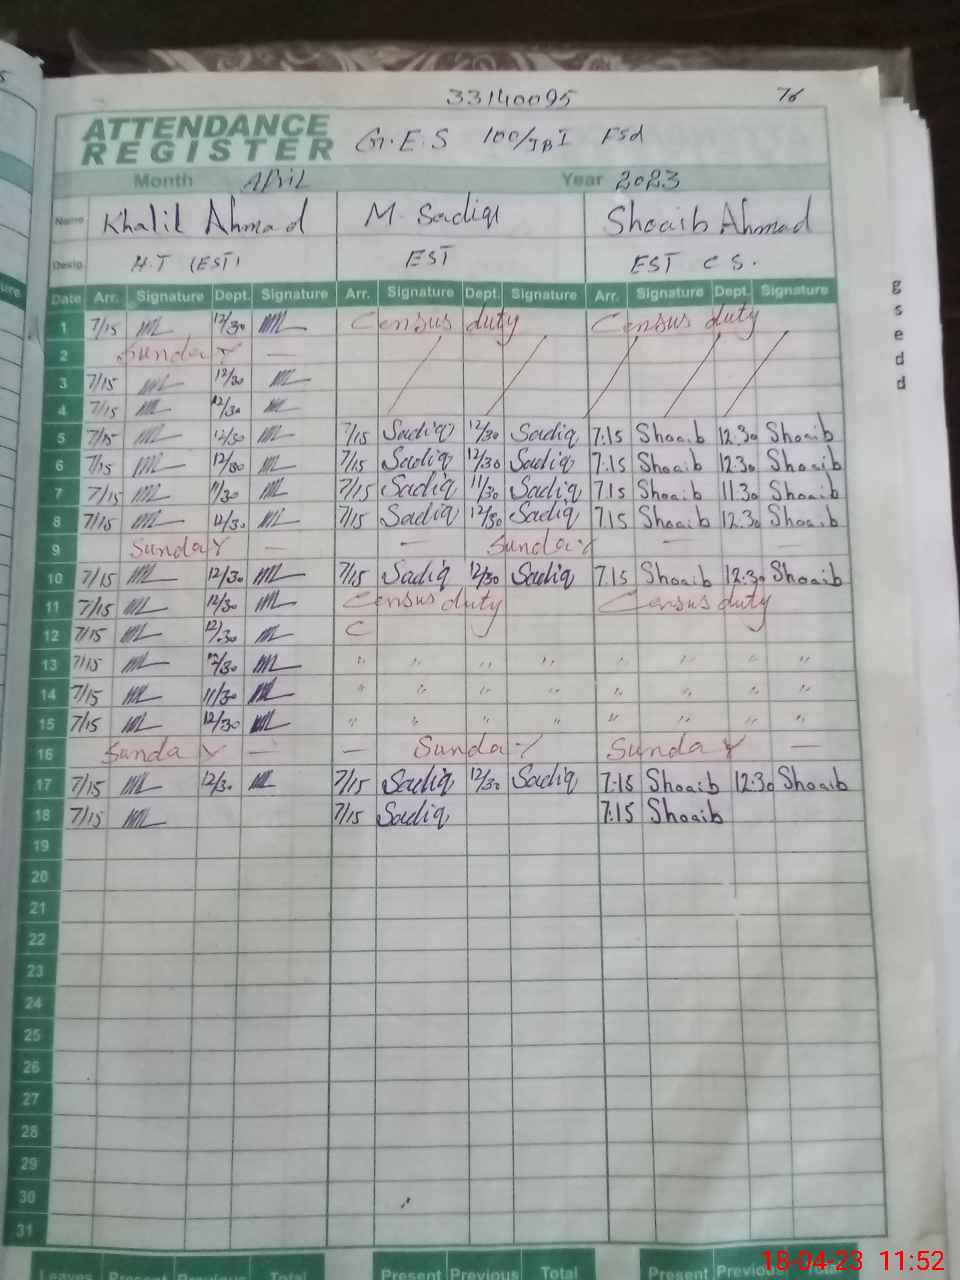 33140095 76
ATTENDANCE
REGISTER G.E.S 100/JB I Fsd
Month April Year 2023
Name Khalil Ahmad M. Sadiq Shoaib Ahmad
Desig. H.T (EST) EST EST C S.
Date Arr. Signature Dept. Signature Arr. Signature Dept. Signature Arr. Signature Dept. Signature
1 7/15 12/30 Census duty Census duty
2 Sunday —
3 7/15 12/30
4 7/15 12/30
5 7/15 12/30 7/15 Sadiq 12/30 Sadiq 7:15 Shoaib 12:30 Shoaib
6 7/15 12/30 7/15 Sadiq 12/30 Sadiq 7:15 Shoaib 12:30 Shoaib
7 7/15 11/30 7/15 Sadiq 11/30 Sadiq 7:15 Shoaib 11:30 Shoaib
8 7/15 12/30 7/15 Sadiq 12/30 Sadiq 7:15 Shoaib 12:30 Shoaib
9 Sunday — — Sunday — —
10 7/15 12/30 7/15 Sadiq 12/30 Sadiq 7:15 Shoaib 12:30 Shoaib
11 7/15 12/30 Census duty Census duty
12 7/15 12/30 C
13 7/15 12/30 " " " " " " " "
14 7/15 11/30 " " " " " " " "
15 7/15 12/30 " " " " " " " "
16 Sunday — — Sunday Sunday —
17 7/15 12/30 7/15 Sadiq 12/30 Sadiq 7:15 Shoaib 12:30 Shoaib
18 7/15 7/15 Sadiq 7:15 Shoaib
19
20
21
22
23
24
25
26
27
28
29
30
31
Leaves Present Previous Total Present Previous Total Present Previous Total
g
s
e
d
d
18-04-23 11:52